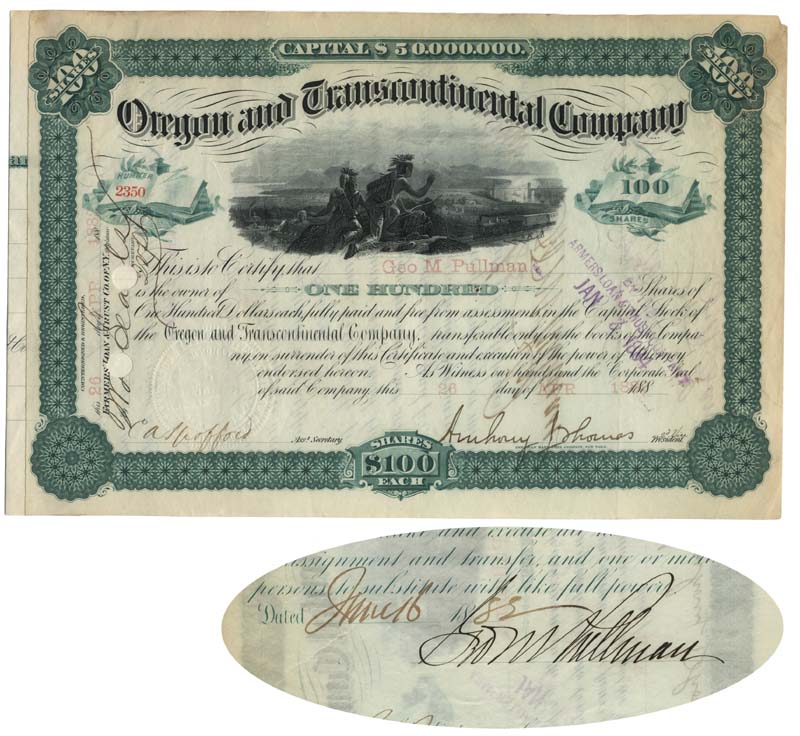 CAPITAL $50.000.000.
100 SHARES
100 SHARES
Oregon and Transcontinental Company
NUMBER
2350
100
SHARES
This is to Certify, that Geo M Pullman
is the owner of ONE HUNDRED Shares of
One Hundred Dollars each, fully paid and free from assessments, in the Capital Stock of
the Oregon and Transcontinental Company, transferable only on the books of the Compa-
ny, on surrender of this Certificate and execution of the power of Attorney
endorsed hereon. As Witness our hands and the Corporate Seal
of said Company, this 26 day of APR 188
A Spofford Asst. Secretary
Anthony J Thomas
President
SHARES
$100
EACH
COUNTERSIGNED & REGISTERED
this 26 day of APR
FARMERS' LOAN & TRUST CO. OF N.Y.
FARMERS LOAN & TRUST
JAN
assignment and transfer, and one or more
persons to substitute with like full power
Dated June 16 1882
Geo M Pullman